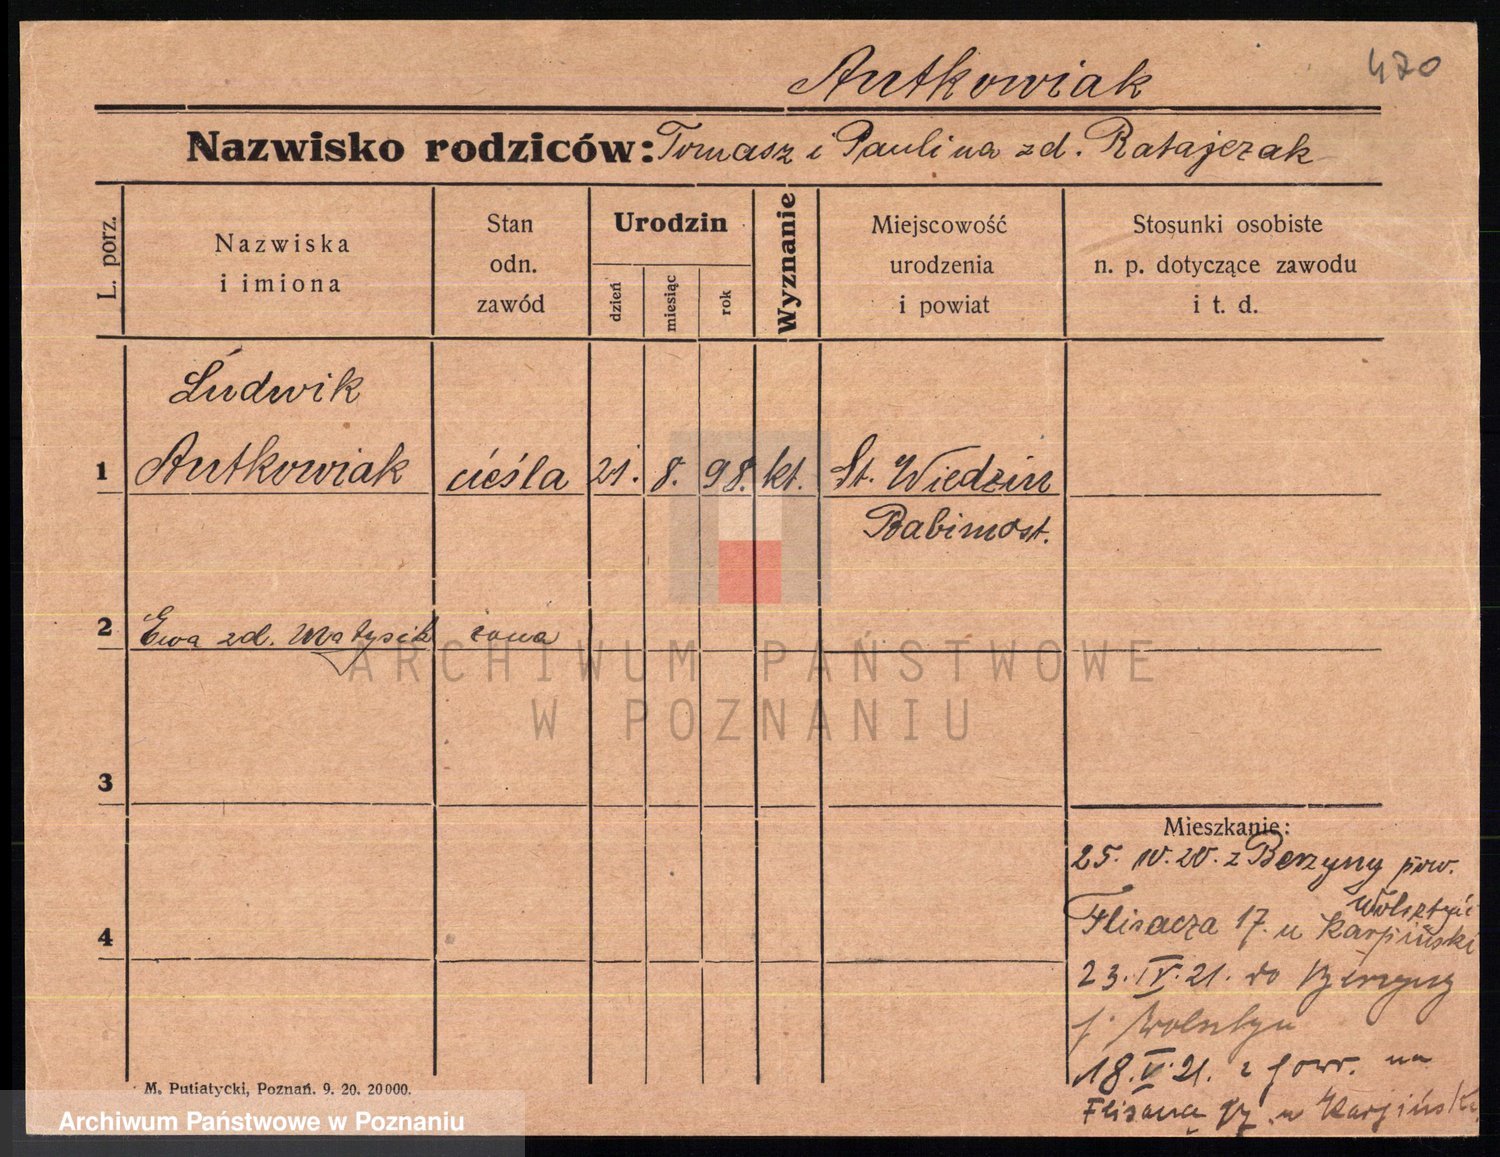 470
Antkowiak
Nazwisko rodziców: Tomasz i Paulina zd. Ratajczak
L. porz.
Nazwiska
i imiona
Stan
odn.
zawód
Urodzin
dzień
miesiąc
rok
Wyznanie
Miejscowość
urodzenia
i powiat
Stosunki osobiste
n. p. dotyczące zawodu
i t. d.
Ludwik
1 Antkowiak cieśla 21. 8. 98. kt. St. Wiedzin
Babimost.
2 Ewa zd. Matysik żona
ARCHIWUM PAŃSTWOWE
W POZNANIU
3
Mieszkanie:
25. 10. 20. z Berzyny pow.
Wolsztyn
4
Flisacza 17. u Karpiński
23. IV. 21. do Berzyny
p. Wolsztyn
18. V. 21. z pow. na
Flisaczą 17 u Karpiński
M. Putiatycki, Poznań. 9. 20. 20000.
Archiwum Państwowe w Poznaniu